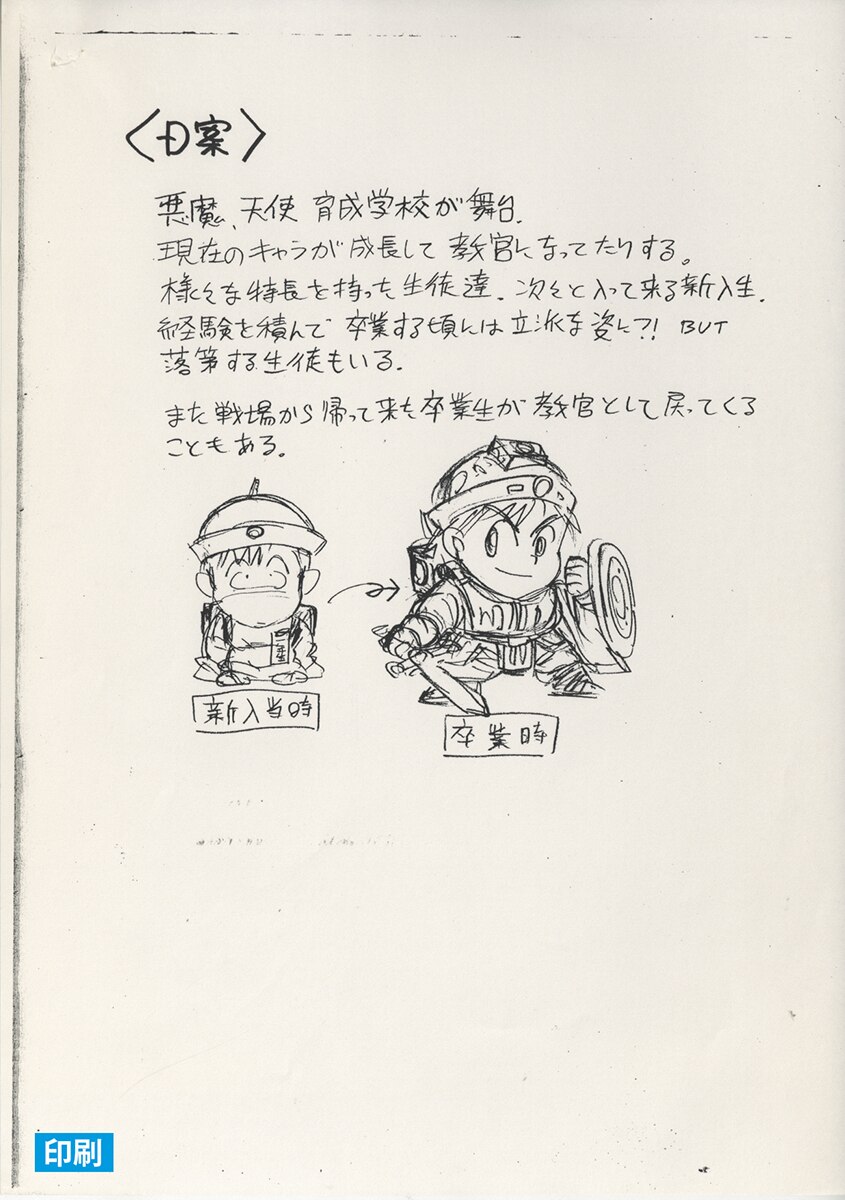 〈D案〉
悪魔、天使 育成学校が舞台.
現在のキャラが成長して 教官になってたりする。
様々な特長を持った生徒達. 次々と入って来る新入生.
経験を積んで 卒業する頃には立派な姿に?! BUT
落第する生徒もいる.
また戦場から帰って来た卒業生が教官として戻ってくる
こともある.
新入当時
卒業時
印刷